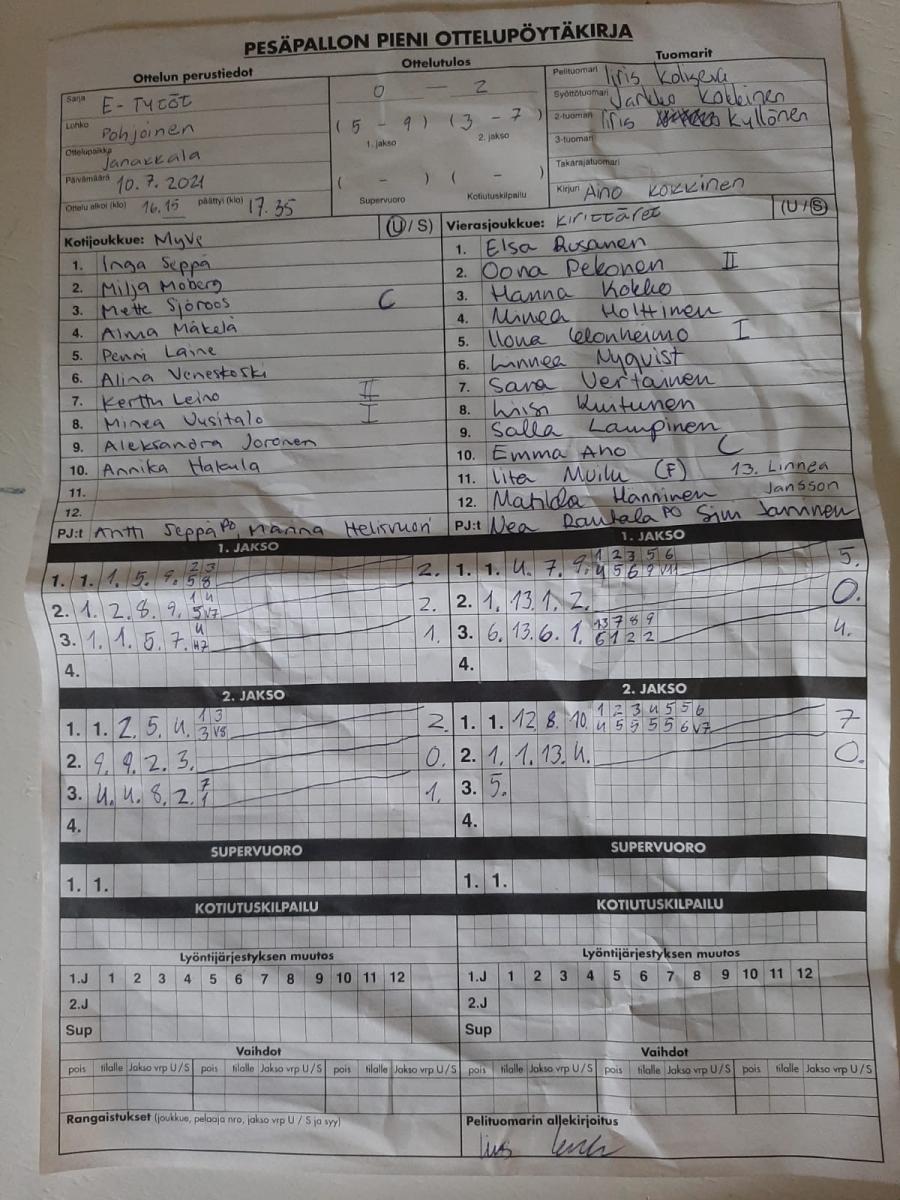 PESÄPALLON PIENI OTTELUPÖYTÄKIRJA
Ottelun perustiedot
Sarja E-Tytöt
Lohko Pohjoinen
Ottelupaikka Janakkala
Päivämäärä 10.7.2021
Ottelu alkoi (klo) 16.15 päättyi (klo) 17.35
Ottelutulos
0 - 2
(5 - 9) (3 - 7)
1. jakso 2. jakso
( - ) ( - )
Supervuoro Kotiutuskilpailu
Tuomarit
Pelituomari Iiris
Syöttötuomari Jarkko Kokkinen
2-tuomari Iiris Kyllönen
3-tuomari
Takarajatuomari
Kirjuri Aino Kokkinen
Kotijoukkue: MyVe (U/S)
1. Inga Seppä
2. Milja Moberg
3. Mette Sjöroos C
4. Alma Mäkelä
5. Penni Laine
6. Alina Veneskoski
7. Kerttu Leino II
8. Minea Uusitalo I
9. Aleksandra Joronen
10. Annika Hakula
11.
12.
PJ:t Antti Seppä PO, Hanna Helisvuori
Vierasjoukkue: Kirittäret (U/S)
1. Elsa Rusanen
2. Oona Pekonen II
3. Hanna Kokko
4. Minea Holttinen
5. Ilona I
6. Linnea Nyqvist
7. Sara Vertainen
8. Kuitunen
9. Salla Lampinen
10. Emma Aho C
11. Iita Muilu (F) 13. Linnea
12. Matilda Hänninen Jansson
PJ:t Nea Rautala PO
1. JAKSO
1. 1. 1. 5. 9. 2 3
5 8
2.
2. 1. 2. 8. 9. 1 4
5 V7
2.
3. 1. 1. 5. 7. 4
1.
4.
1. JAKSO
1. 1. 4. 7. 9. 1 2 3 5 6
4 5 6 9
5.
2. 1. 13. 1. 2. 0.
3. 6. 13. 6. 1. 13 7 8 9
6 1 2 2
4.
4.
2. JAKSO
1. 1. 2. 5. 4. 1 3
3 V8
2.
2. 9. 9. 2. 3. 0.
3. 4. 4. 8. 2. 7
1
1.
4.
2. JAKSO
1. 1. 12. 8. 10. 1 2 3 4 5 5 6
4 5 5 5 5 6 V7
7
2. 1. 1. 13. 4. 0.
3. 5.
4.
SUPERVUORO
1. 1.
SUPERVUORO
1. 1.
KOTIUTUSKILPAILU
KOTIUTUSKILPAILU
Lyöntijärjestyksen muutos
1.J 1 2 3 4 5 6 7 8 9 10 11 12
2.J
Sup
Lyöntijärjestyksen muutos
1.J 1 2 3 4 5 6 7 8 9 10 11 12
2.J
Sup
Vaihdot
pois tilalle Jakso vrp U/S pois tilalle Jakso vrp U/S pois tilalle Jakso vrp U/S
Vaihdot
pois tilalle Jakso vrp U/S pois tilalle Jakso vrp U/S pois tilalle Jakso vrp U/S
Rangaistukset (joukkue, pelaaja nro, jakso vrp U / S ja syy)
Pelituomarin allekirjoitus